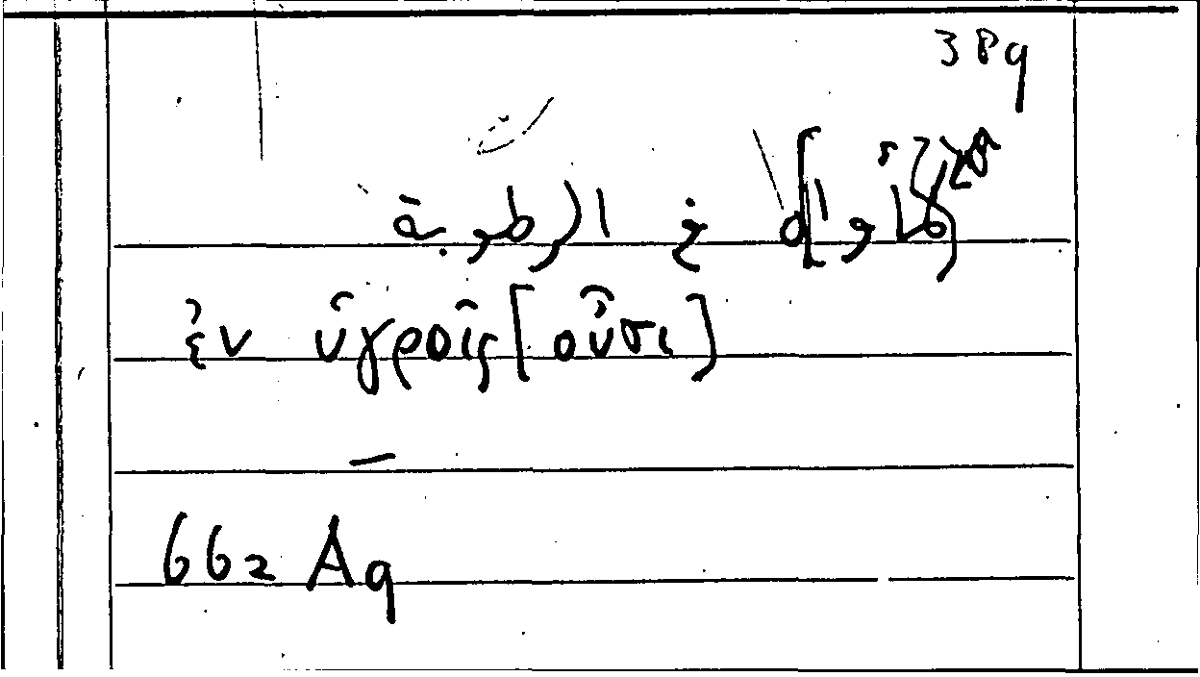 389
في الرطوبة
ἐν ὑγροῖς [οὖσι]
—
662 A9